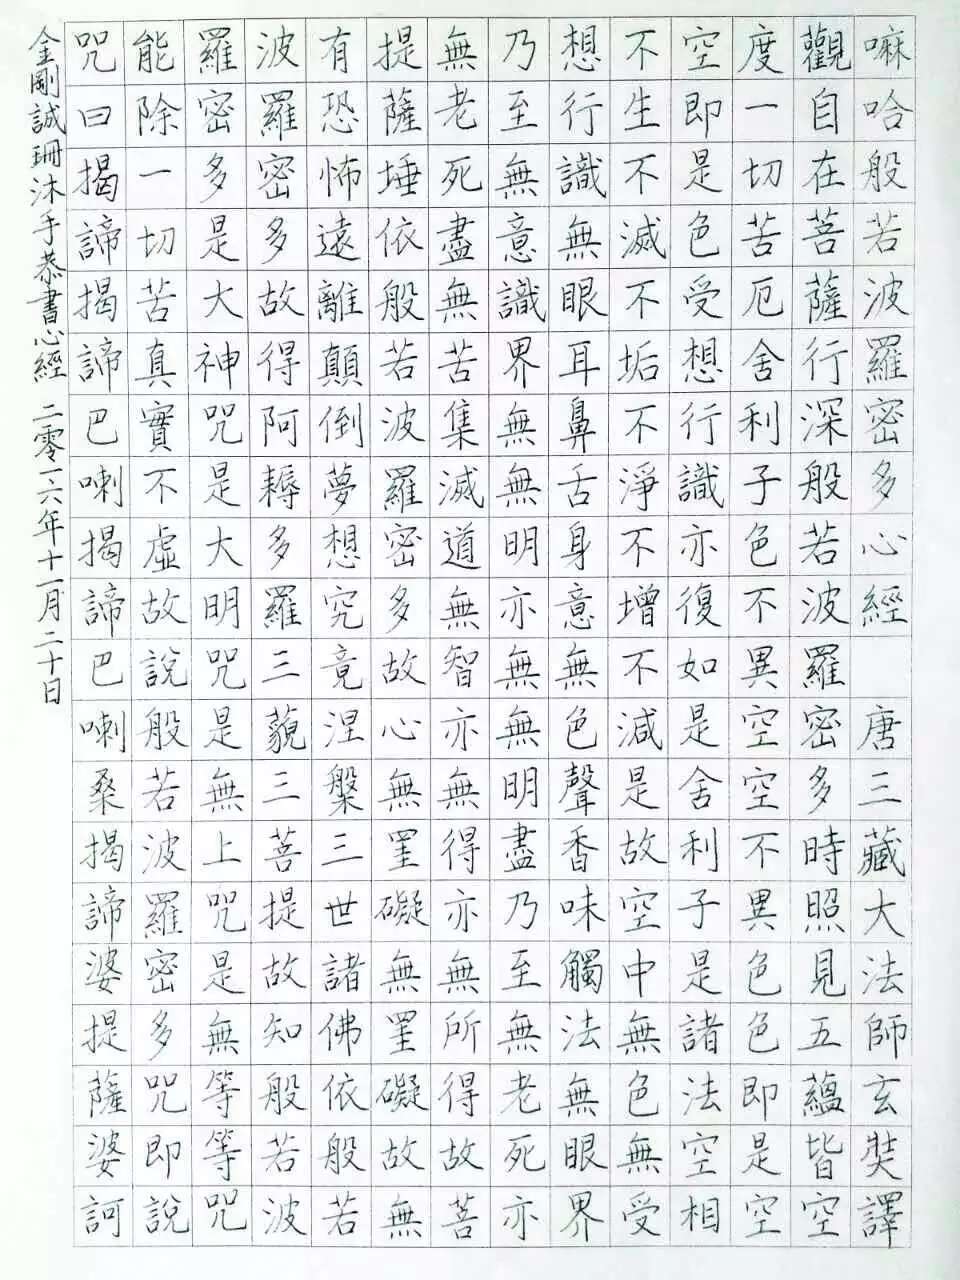 嘛哈般若波羅密多心經 唐三藏大法師玄奘譯
觀自在菩薩行深般若波羅密多時照見五蘊皆空
度一切苦厄舍利子色不異空空不異色色即是空
空即是色受想行識亦復如是舍利子是諸法空相
不生不滅不垢不淨不增不減是故空中無色無受
想行識無眼耳鼻舌身意無色聲香味觸法無眼界
乃至無意識界無無明亦無無明盡乃至無老死亦
無老死盡無苦集滅道無智亦無得亦無所得故菩
提薩埵依般若波羅密多故心無罣礙無罣礙故無
有恐怖遠離顛倒夢想究竟涅槃三世諸佛依般若
波羅密多故得阿耨多羅三藐三菩提故知般若波
羅密多是大神咒是大明咒是無上咒是無等等咒
能除一切苦真實不虛故說般若波羅密多咒即說
咒曰揭諦揭諦巴喇揭諦巴喇桑揭諦婆提薩婆訶
金剛誠珊沐手恭書心經 二零一六年十一月二十日